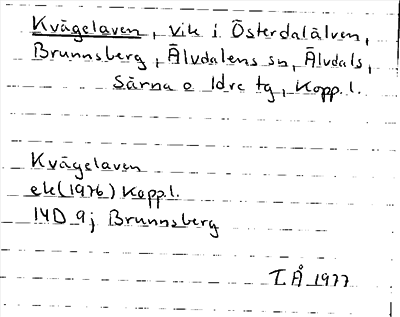 Kvägelaven, vik i Österdalälven,
Brunnsberg, Älvdalens sn, Älvdals,
Särna o Idre tg, Kopp.l.
Kvägelaven
ek(1976) Kopp.l.
14D 9j Brunnsberg
T.Å 1977